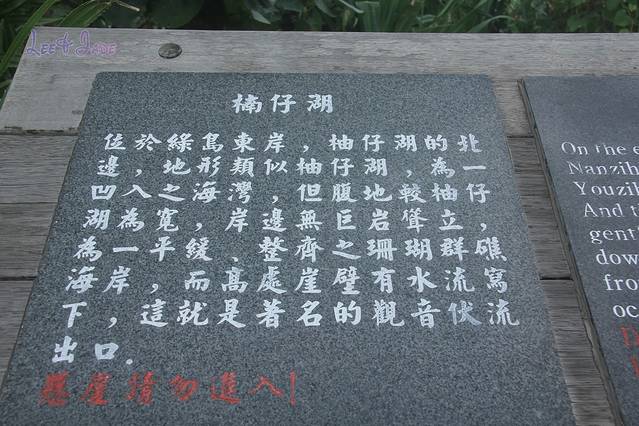 Lee & Jade
楠仔湖
位於綠島東岸，柚仔湖的北
邊，地形類似柚仔湖，為一
凹入之海灣，但腹地較柚仔
湖為寬，岸邊無巨岩聳立，
為一平緩、整齊之珊瑚群礁
海岸，而高處崖壁有水流寫
下，這就是著名的觀音伏流
出口.
懸崖請勿進入!
On the e
Nanzih
Youzi
And i
gent
dow
fro
oc